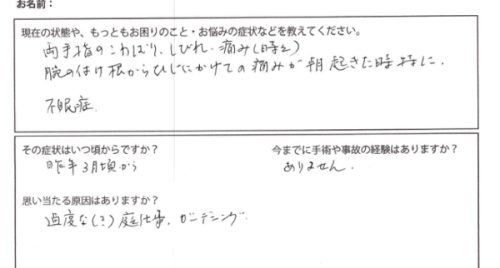 お名前：
現在の状態や、もっともお困りのこと・お悩みの症状などを教えてください。
両手指のこわばり、しびれ、痛み(時々)
腕の付け根からひじにかけての痛みが朝起きた時特に、
不眠症
その症状はいつ頃からですか？
昨年3月頃から
今までに手術や事故の経験はありますか？
ありません.
思い当たる原因はありますか？
過度な(？)庭仕事、ガーデニング